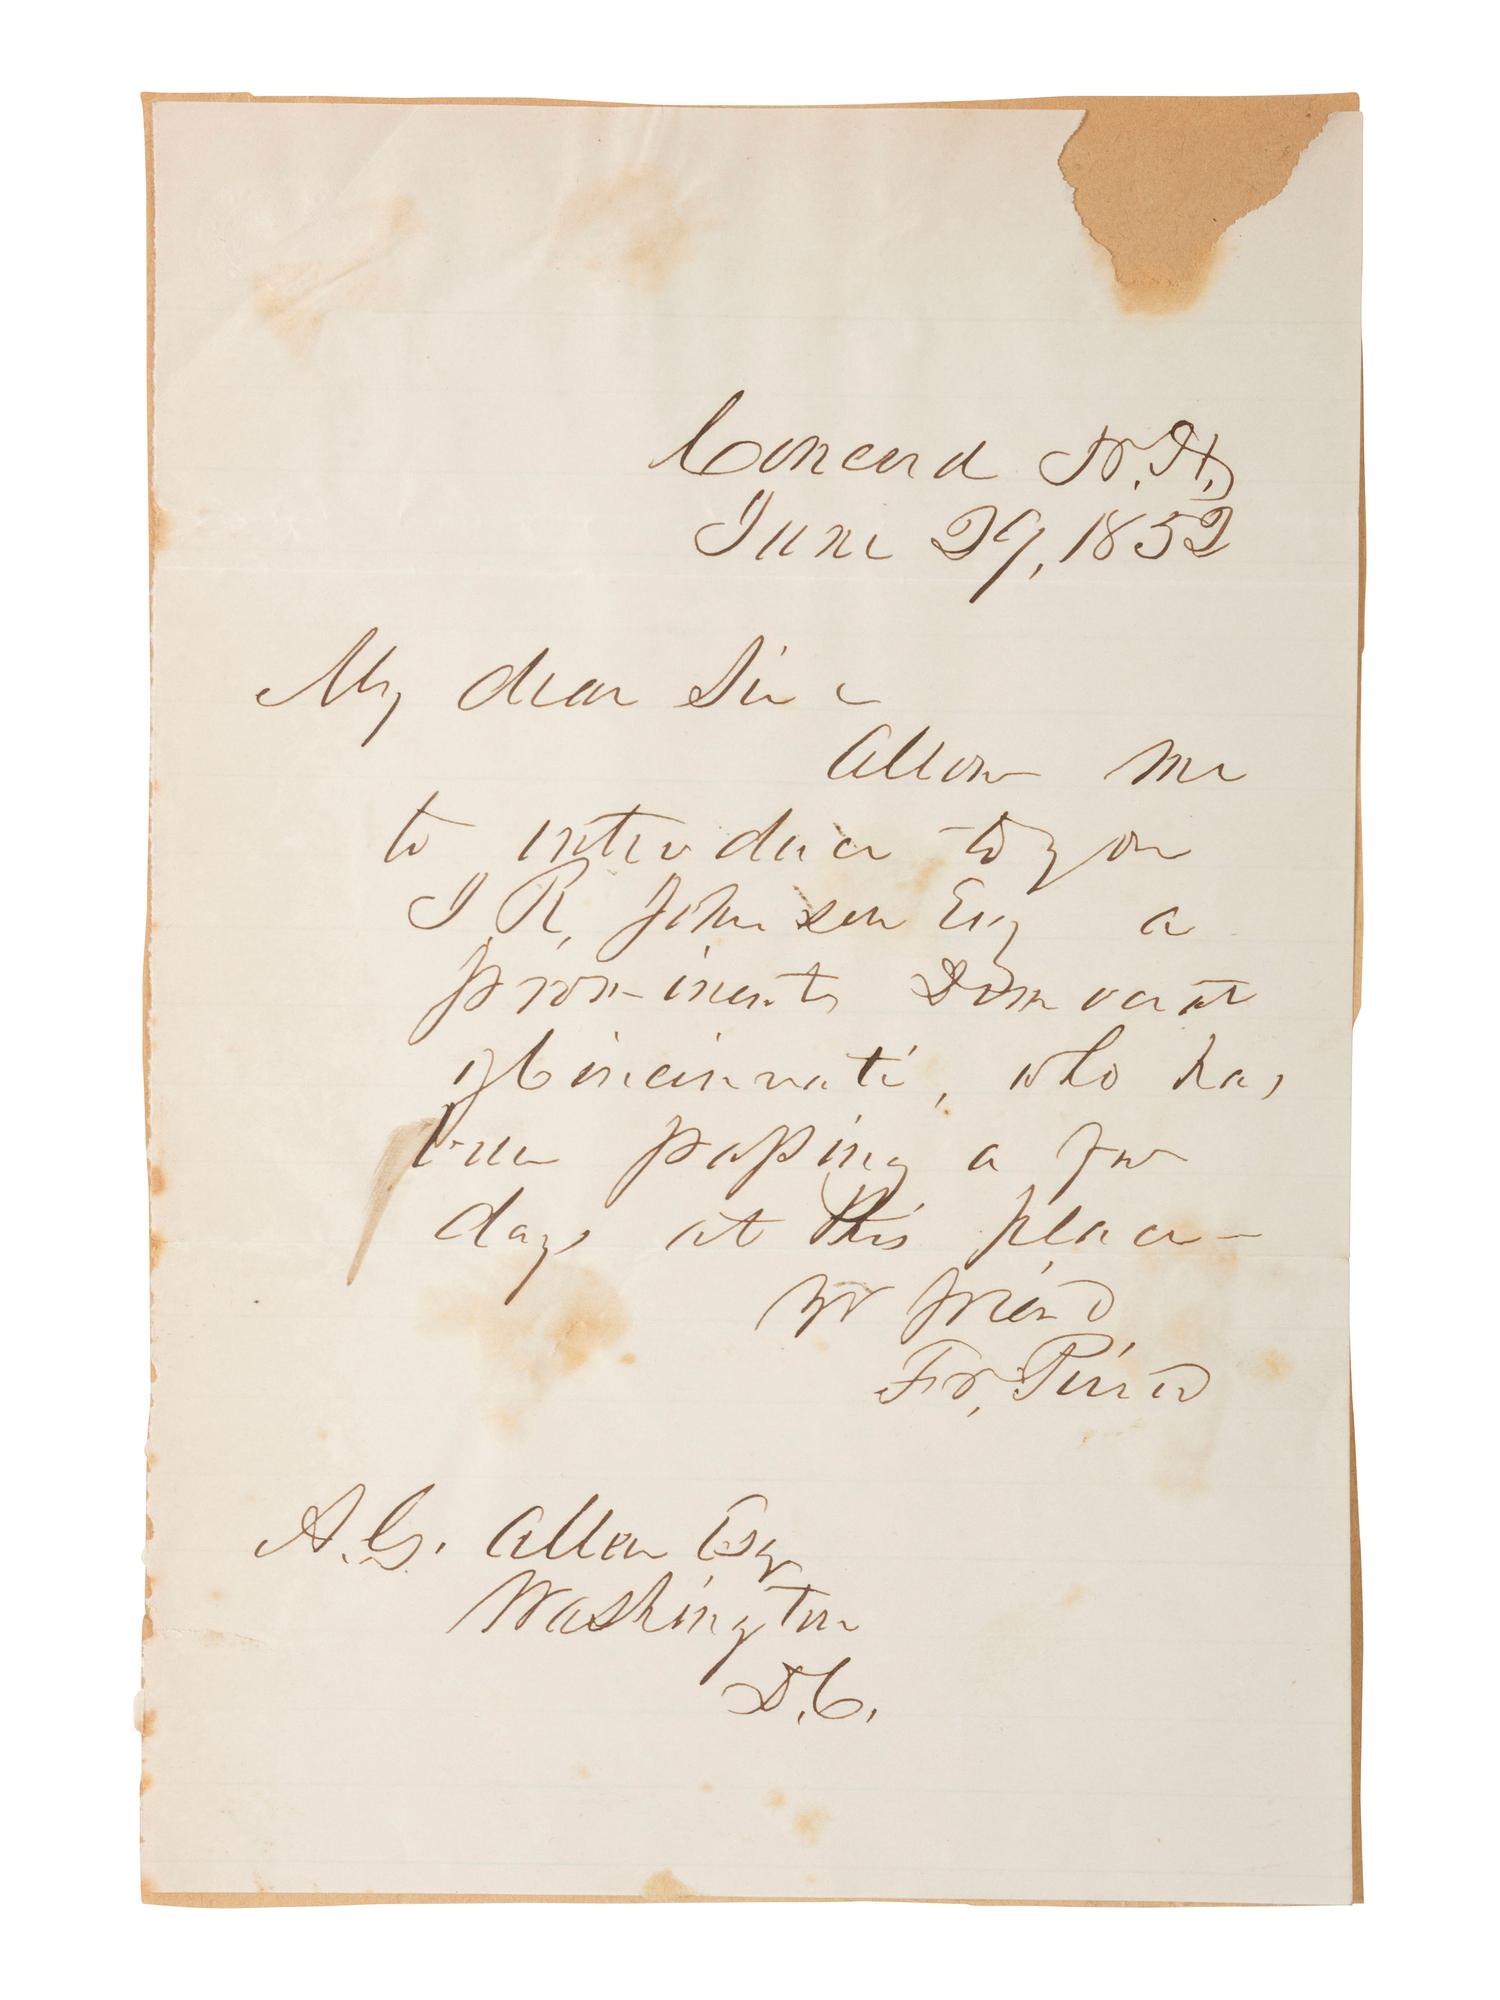 Concord N.H.
June 29, 1852
My dear Sir
Allow me
to introduce to you
J. R. Johnson Esq a
prominent Democrat
of Cincinnati, who has
been passing a few
days at this place —
Yr friend
Fr. Pierce
A. G. Allen Esq
Washington
D.C.